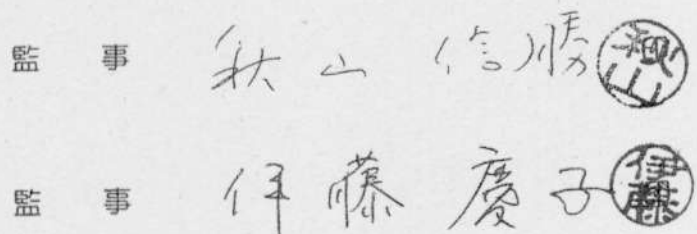 監事 秋山 信勝 秋山
監事 伊藤 慶子 伊藤